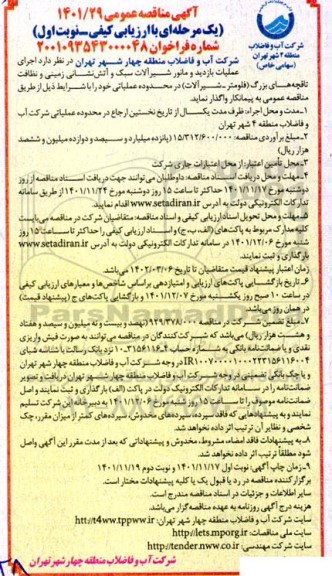 آگهی مناقصه عمومی ۱۴۰۱/۲۹
(یک مرحله‌ای با ارزیابی کیفی-نوبت اول)
شماره فراخوان ۲۰۰۱۰۹۳۵۴۳۰۰۰۰۴۸
شرکت آب و فاضلاب
منطقه ۴ شهر تهران
(سهامی خاص)
شرکت آب و فاضلاب منطقه چهار شهر تهران در نظر دارد اجرای
عملیات بازدید و مانور شیرآلات سبک و آتش‌نشانی زمینی و نظافت
تاقچه‌های بزرگ (فلومتر-شیرآلات) در محدوده عملیاتی خود را با شرایط ذیل از طریق
مناقصه عمومی به پیمانکار واگذار نماید.
۱-مدت و محل اجراء: ظرف مدت یکسال از تاریخ نخستین ارجاع در محدوده عملیاتی شرکت آب
و فاضلاب منطقه ۴ شهر تهران
۲-مبلغ برآوردی مناقصه: ۱۵/۳۱۲/۶۰۰/۰۰۰ (پانزده میلیارد و سیصد و دوازده میلیون و ششصد
هزار ریال)
۳-محل تأمین اعتبار: از محل اعتبارات جاری شرکت
۴-مهلت و محل دریافت اسناد مناقصه: داوطلبان می‌توانند جهت دریافت اسناد مناقصه از روز
دوشنبه مورخ ۱۴۰۱/۱۱/۱۷ حداکثر تا ساعت ۱۵ روز دوشنبه مورخ ۱۴۰۱/۱۱/۲۴ از طریق سامانه
تدارکات الکترونیکی دولت به آدرس www.setadiran.ir اقدام نمایند.
۵-مهلت و محل تحویل اسناد ارزیابی کیفی و اسناد مناقصه: متقاضیان شرکت در مناقصه می‌بایست
کلیه مدارک مربوط به پاکت‌های (الف، ب، ج) و اسناد ارزیابی کیفی را حداکثر تا ساعت ۱۵ روز
شنبه مورخ ۱۴۰۱/۱۲/۰۶ در سامانه تدارکات الکترونیکی دولت به آدرس www.setadiran.ir
بارگذاری و ثبت نمایند.
زمان اعتبار پیشنهاد قیمت متقاضیان تا تاریخ ۱۴۰۲/۰۳/۰۶ می‌باشد.
۶-تاریخ بازگشایی پاکت‌های ارزیابی و امتیازدهی براساس شاخص‌ها و معیارهای ارزیابی کیفی
در ساعت ۱۰ صبح روز یکشنبه مورخ ۱۴۰۱/۱۲/۰۷ و بازگشایی پاکت‌های ج (پیشنهاد قیمت)
در همان روز می‌باشد.
۷-مبلغ تضمین شرکت در مناقصه ۹۲۹/۳۷۸/۰۰۰ (نهصد و بیست و نه میلیون و سیصد و هفتاد
و هشت هزار ریال) می‌باشد که شرکت‌کنندگان در مناقصه می‌توانند به صورت فیش واریزی
و یا چک بانکی تضمینی در وجه شرکت آب و فاضلاب منطقه چهار شهر تهران دریافت و تصویر
ضمانت‌نامه را در سامانه تدارکات الکترونیک دولت در پاکت (الف) بارگذاری و ثبت نمایند و اصل
ضمانت‌نامه موصوف را تا ساعت ۱۵ روز شنبه مورخ ۱۴۰۱/۱۲/۰۶ به دبیرخانه این شرکت تسلیم
نمایند و به پیشنهادهایی که فاقد سپرده، سپرده‌های مخدوش، سپرده‌های کمتر از میزان مقرر، چک
شخصی و نظایر آن ترتیب اثر داده نخواهد شد.
۸-به پیشنهادات فاقد امضاء، مشروط، مخدوش و پیشنهاداتی که بعد از مدت مقرر این آگهی واصل
شود مطلقا ترتیب اثر داده نخواهد شد.
۹-زمان چاپ آگهی: نوبت اول ۱۴۰۱/۱۱/۱۷ و نوبت دوم ۱۴۰۱/۱۱/۱۹
برگزارکننده مناقصه در رد یا قبول یک یا کلیه پیشنهادات مختار است.
سایر اطلاعات و جزئیات در اسناد مناقصه مندرج است.
هزینه درج آگهی روزنامه به عهده مناقصه‌گزار می‌باشد.
سایت شرکت آب و فاضلاب منطقه چهار شهر تهران: htt://t4ww.tppww.ir
سایت ملی مناقصات: http://iets.mporg.ir
سایت شرکت مهندسی: http://tender.nww.co.ir
شرکت آب و فاضلاب منطقه چهار شهر تهران